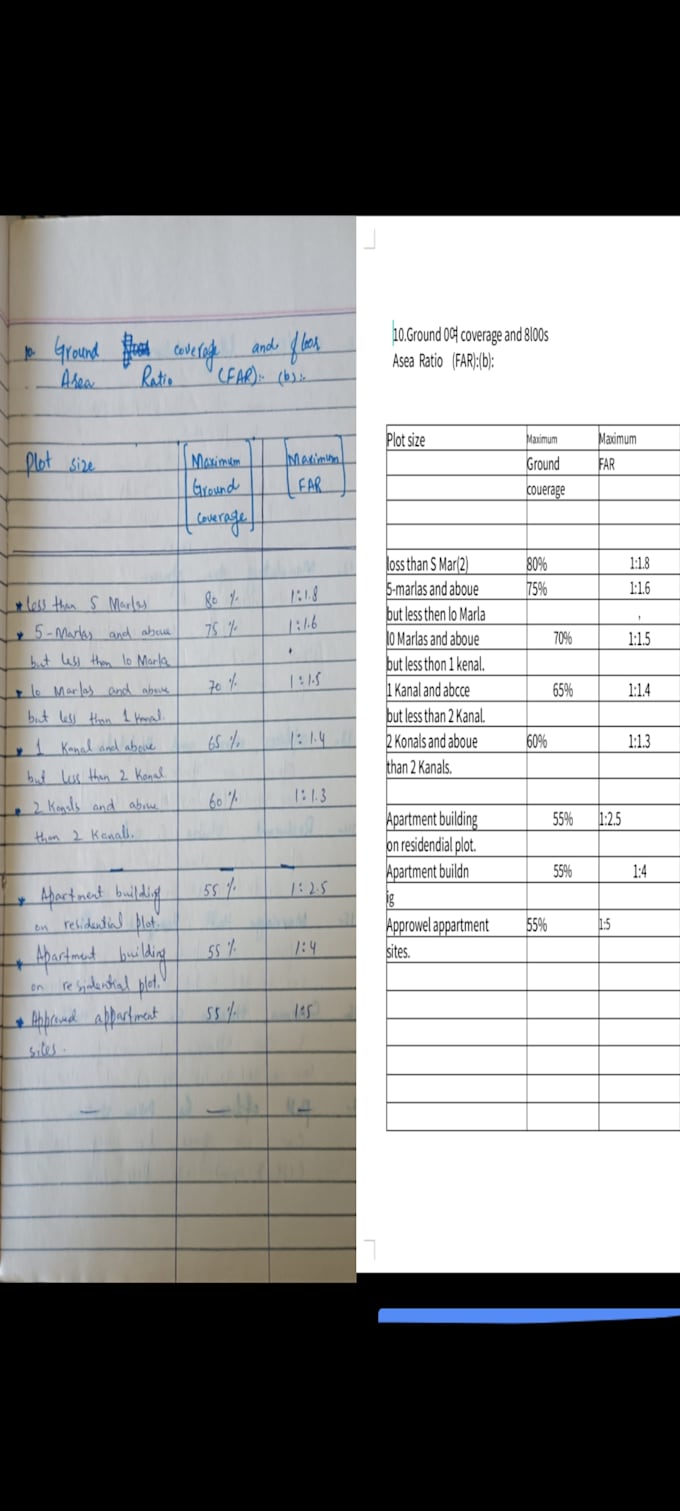 10. Ground coverage and floor
Area Ratio (FAR):- (b):-
Plot size Maximum Maximum
Ground FAR
coverage
* Less than 5 Marlas 80 % 1:1.8
* 5-Marlas and above 75 % 1:1.6
but less then 10 Marla
* 10 Marlas and above 70 % 1:1.5
but less than 1 kanal.
* 1 Kanal and above 65 % 1:1.4
but less than 2 Kanal
* 2 Kanals and above 60 % 1:1.3
than 2 Kanals.
* Apartment building 55 % 1:2.5
on residential plot.
* Apartment building 55 % 1:4
on residential plot.
* Approved appartment 55 % 1:5
sites.
10.Ground coverage and 8l00s
Asea Ratio (FAR):(b):
Plot size Maximum Maximum
Ground FAR
couerage
loss than S Mar(2) 80% 1:1.8
5-marlas and aboue 75% 1:1.6
but less then lo Marla
l0 Marlas and aboue 70% 1:1.5
but less thon 1 kenal.
1 Kanal and abcce 65% 1:1.4
but less than 2 Kanal.
2 Konals and aboue 60% 1:1.3
than 2 Kanals.
Apartment building 55% 1:2.5
on residendial plot.
Apartment buildn 55% 1:4
ig
Approwel appartment 55% 1:5
sites.